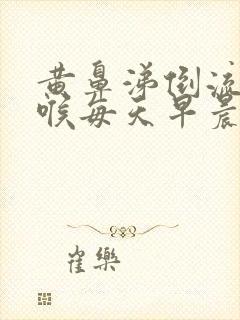 黄鼻涕倒流
喉每天早晨
崔樂